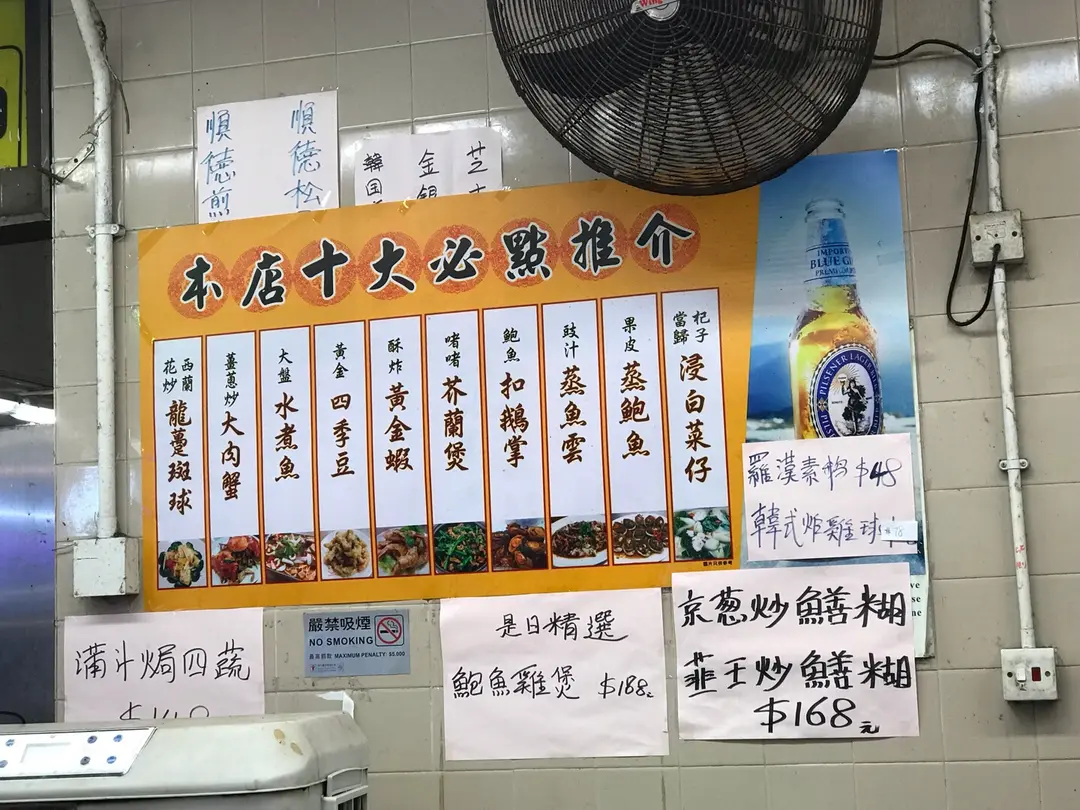 順德松
順德煎
金銀
韓国
Wing
本店十大必點推介
杞子當歸浸白菜仔
果皮蒸鮑魚
豉汁蒸魚雲
鮑魚扣鵝掌
啫啫芥蘭煲
酥炸黃金蝦
黃金四季豆
大盤水煮魚
薑蔥炒大肉蟹
西蘭花炒龍躉斑球
圖片只供參考
BLUE G
PILSENER LAGER
羅漢素粉 $48
韓式炸雞球 $78
汁焗四蔬
嚴禁吸煙
NO SMOKING
最高罰款 MAXIMUM PENALTY: $5,000
是日精選
鮑魚雞煲 $188
京葱炒鱔糊
韮王炒鱔糊
$168元